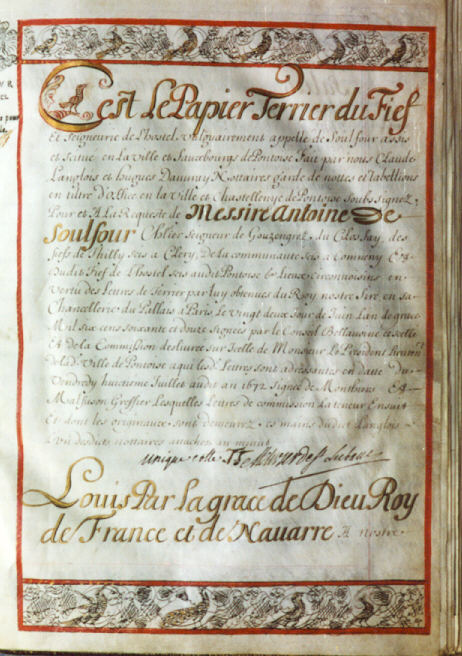 Cest Le Papier Terrier du Fief
Et Seigneurie de Lhostel Vulguairement appelle de Soulfour assis
et scitue en La Ville et fauxbourgs de Pontoise Fait par nous Claude
Langlois et hugues Dauuray Nottaires garde de nottes et tabellions
en tiltre d'office en la Ville et Chastellenye de Pontoise Soubs Signez
Pour et A La Requeste de Messire Antoine De
Soulfour Chlier Seigneur de Gouzengrez, du Clos Jay, des
fiefs de Thilly scis a Clery, De la communaute scis a Commeny Et
dudit Fief de Lhostel scis audit Pontoise & Lieux Circonuoisins en
Vertu des Lettres de Terrier par luy obtenues du Roy nostre Sire en sa
Chancellerie du Pallais a Paris Le Vingt deux Jour de Juin Lan de grace
Mil Six cens soixante et douze Signées par le Conseil et scellé
Et de la Commission desliuree sur Icelle de Monsieur Le President
de lad. Ville de Pontoise a qui lesd. Lettres sont adressantes en datte du
Vendredy huictieme Juillet audit an 1672 Signée de Monthiers Et
Malfuson Greffier Lesquelles Lettres de commission La teneur Ensuit
Et dont les originaux sont demeurez es mains dudit Langlois
L'vn desdicts nottaires attachez au
Louis Par La grace de Dieu Roy
de France et de Nauarre A nostre